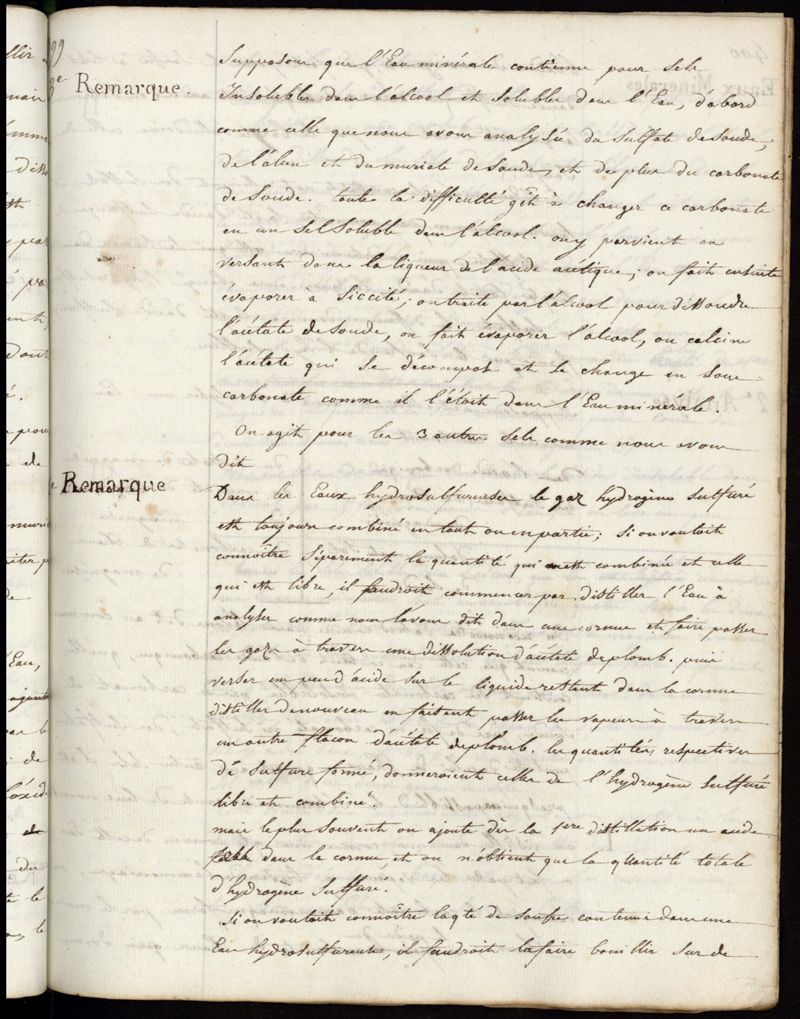 99
3e Remarque.
Supposons que l'Eau minérale contienne pour sels
Insolubles dans l'alcool et solubles dans l'Eau, d'abord
comme celle que nous avons analysée du sulfate de soude,
de l'alun et du muriate de soude, et de plus du carbonate
de soude. toute la difficulté gît à changer ce carbonate
en un sel soluble dans l'alcool. on y parvient en
versant dans la liqueur de l'acide acétique; on fait ensuite
évaporer à siccité; on traite par l'alcool pour dissoudre
l'acétate de soude, on fait évaporer l'alcool, on calcine
l'acétate qui se décompose et se change en sous
carbonate comme il l'étoit dans l'Eau minerale.
On agit pour les 3 autres sels comme nous avons
dit
Remarque
Dans les Eaux hydrosulfureuses le gaz hydrogène sulfuré
est toujours combiné en tout ou en partie; si on vouloit
connoître séparément la quantité qui est combinée et celle
qui est libre, il faudroit commencer par distiller l'Eau à
analyser comme nous l'avons dit dans une cornue et faire passer
les gaz à travers une dissolution d'acétate de plomb. puis
verser un peu d'acide sur le liquide restant dans la cornue
distiller de nouveau en faisant passer les vapeurs à travers
un autre flacon d'acétate de plomb. les quantités respectives
de sulfure formé, donneroient celles de l'hydrogène sulfuré
libre et combiné.
mais le plus souvent on ajoute dès la 1ere distillation un acide
faible dans la cornue, et on n'obtient que la quantité totale
d'hydrogène sulfuré.
Si on vouloit connoître la qté de soufre contenue dans une
Eau hydrosulfureuse, il faudroit la faire bouillir sur de